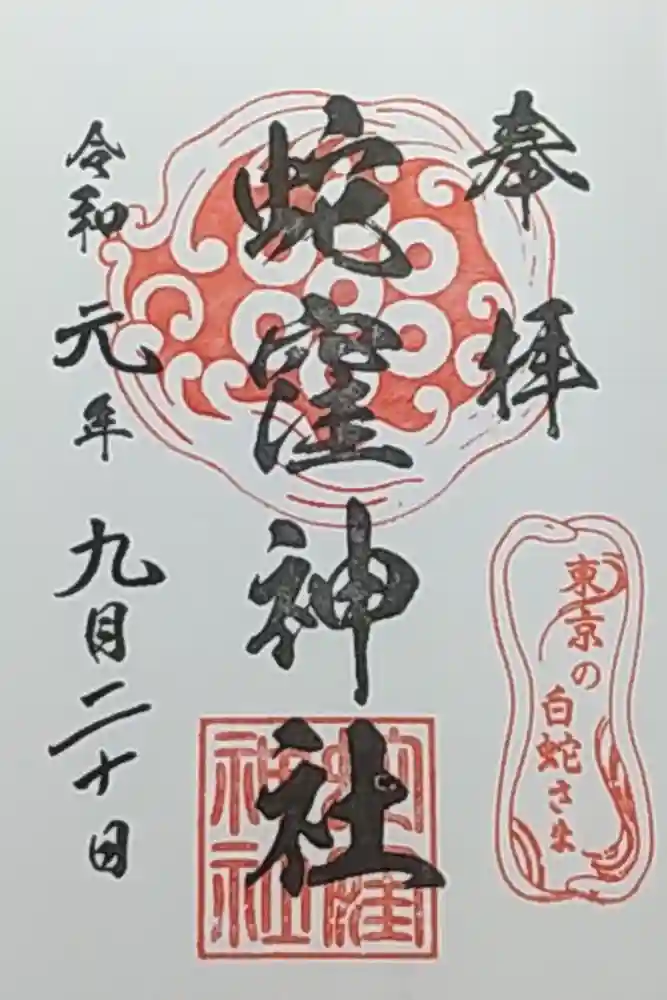 奉拝
東京の
白蛇さま
蛇窪神社
蛇窪
神社
令和元年九月二十日